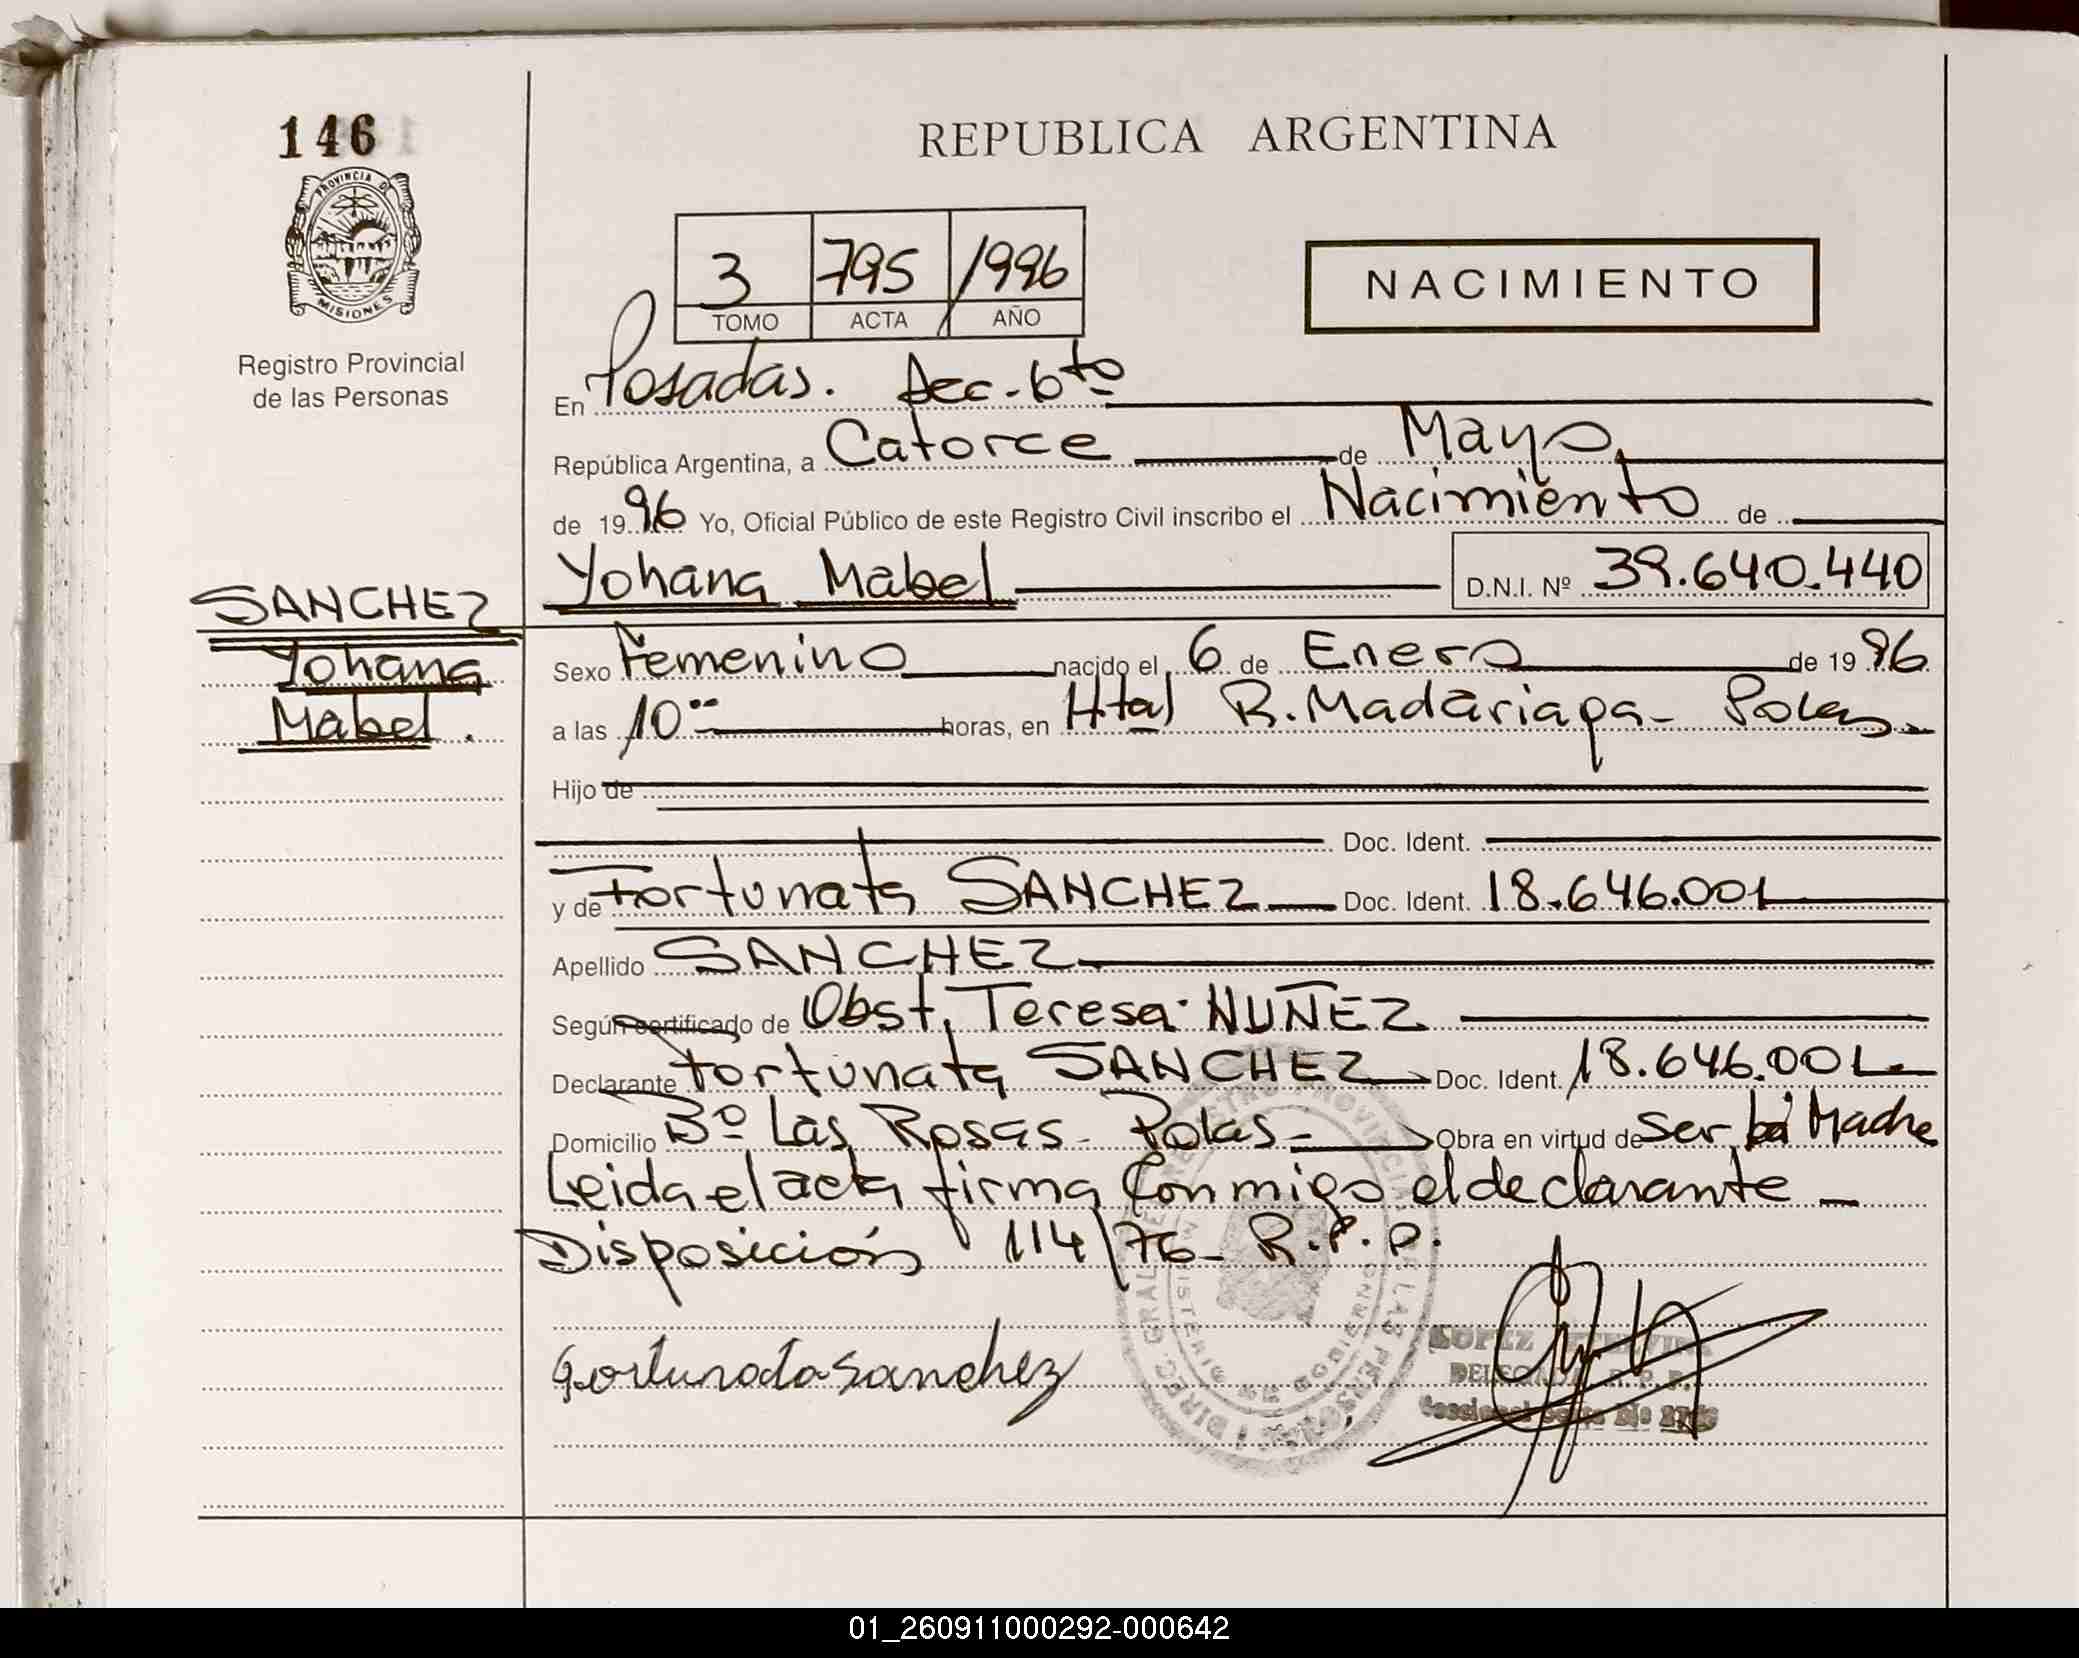 146
PROVINCIA D
MISIONES
Registro Provincial
de las Personas
REPUBLICA ARGENTINA
3 795 1996
TOMO ACTA AÑO
NACIMIENTO
En Posadas. Sec. 6to
República Argentina, a Catorce de Mayo
de 1996 Yo, Oficial Público de este Registro Civil inscribo el Nacimiento de
Yohana Mabel D.N.I. Nº 39.640.440
SANCHEZ
Yohana
Mabel.
Sexo Femenino nacido el 6 de Enero de 1996
a las 10 horas, en Htal R. Madariaga - Pdas
Hijo de
Doc. Ident.
y de Fortunata SANCHEZ Doc. Ident. 18.646.001
Apellido SANCHEZ
Según certificado de Obst. Teresa NUÑEZ
Declarante Fortunata SANCHEZ Doc. Ident. 18.646.001
Domicilio Bº Las Rosas - Pdas - Obra en virtud de ser la Madre
Leida el acta firma Conmigo el declarante
Disposición 114/76 - R.P.P.
Fortunata Sanchez
LOPEZ
01_260911000292-000642